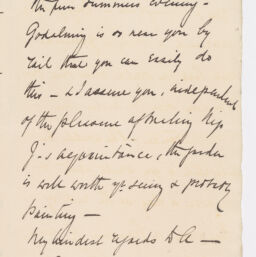 fine summer evening -
Godalming is so near you by
rail that you can easily do
this - & I assure you, independent
of the pleasure of making Miss
J-'s acquaintance, the garden
is well worth yr seeing & probably
painting -
My kindest regards to A -